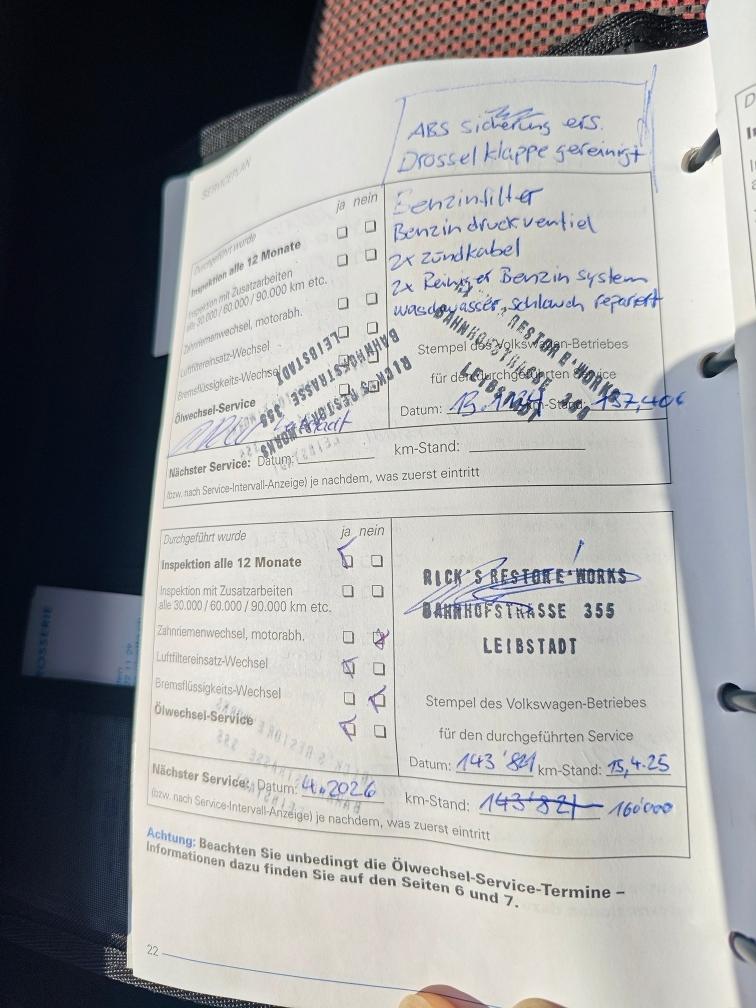 SERVICEPLAN
ABS Sicherung ers.
Drosselklappe gereinigt
Durchgeführt wurde
ja nein
Inspektion alle 12 Monate
Inspektion mit Zusatzarbeiten
alle 30.000 / 60.000 / 90.000 km etc.
Zahnriemenwechsel, motorabh.
Luftfiltereinsatz-Wechsel
Bremsflüssigkeits-Wechsel
Ölwechsel-Service
Benzinfilter
Benzindruckventiel
2x Zündkabel
2x Reiniger Benzin system
waschwasser schlauch repariert
RICK'S RESTORE'WORKS
BAHNHOFSTRASSE 355
LEIBSTADT
Stempel des Volkswagen-Betriebes
für den durchgeführten Service
RICK'S RESTORE'WORKS
BAHNHOFSTRASSE
LEIBSTADT
Datum: km-Stand: 137,406
Nächster Service: Datum:
km-Stand:
(bzw. nach Service-Intervall-Anzeige) je nachdem, was zuerst eintritt
Durchgeführt wurde
ja nein
Inspektion alle 12 Monate
Inspektion mit Zusatzarbeiten
alle 30.000 / 60.000 / 90.000 km etc.
Zahnriemenwechsel, motorabh.
Luftfiltereinsatz-Wechsel
Bremsflüssigkeits-Wechsel
Ölwechsel-Service
RICK'S RESTORE'WORKS
BAHNHOFSTRASSE 355
LEIBSTADT
Stempel des Volkswagen-Betriebes
für den durchgeführten Service
Datum: 143'821 km-Stand: 15,4.25
Nächster Service: Datum: 4.2026
km-Stand: 143'821 160'000
(bzw. nach Service-Intervall-Anzeige) je nachdem, was zuerst eintritt
Achtung: Beachten Sie unbedingt die Ölwechsel-Service-Termine –
Informationen dazu finden Sie auf den Seiten 6 und 7.
22